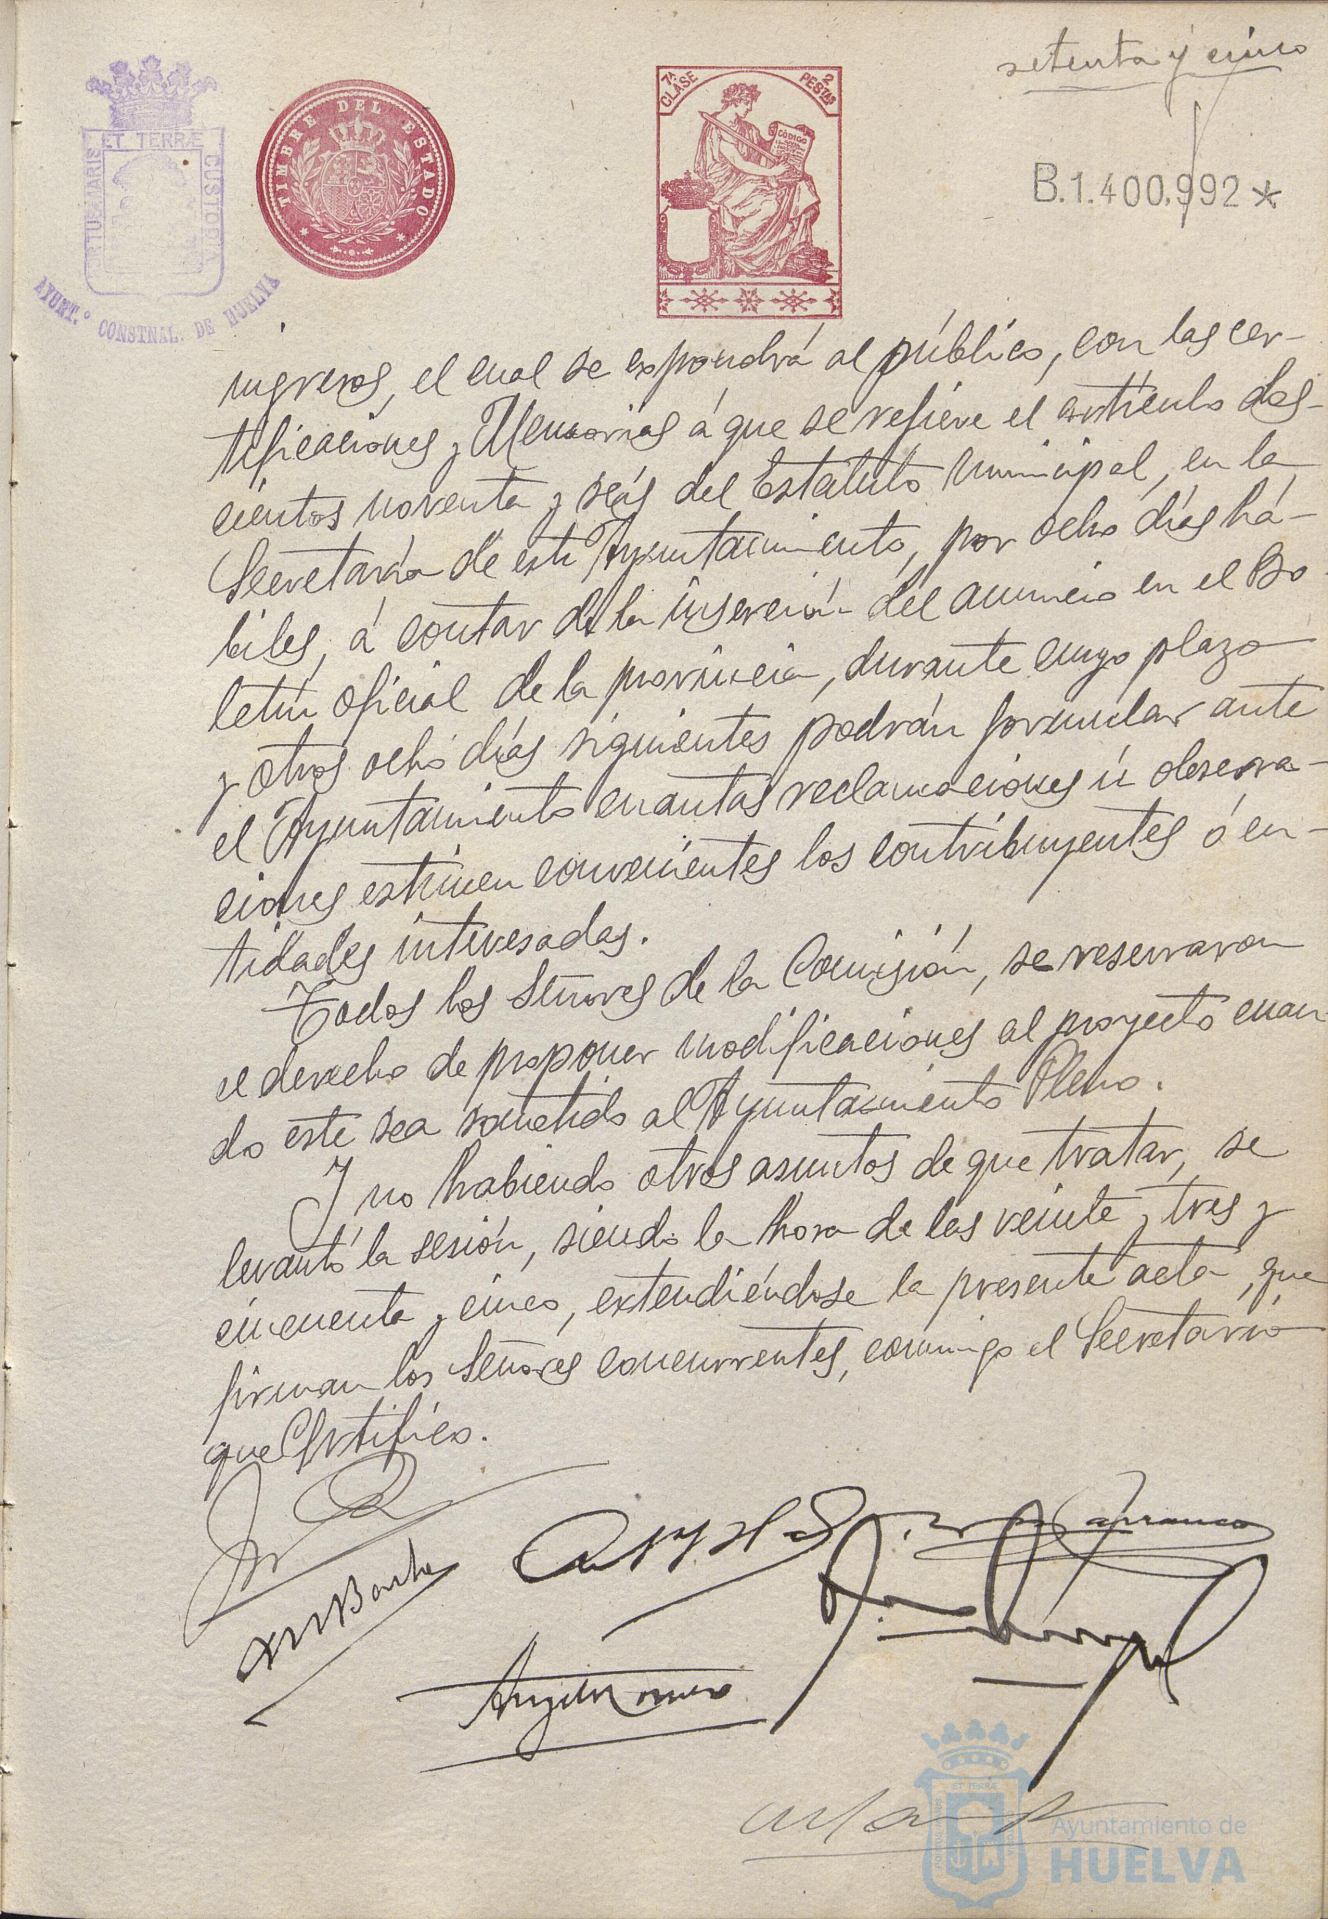 setenta y cinco
PORTUS MARIS ET TERRÆ CUSTODIA
AYUNT.º CONSTNAL. DE HUELVA
TIMBRE DEL ESTADO
7ª CLASE
2 PESTAS
CÓDIGO
B.1.400.992*
ingresos, el cual se expondrá al público, con las cer-
tificaciones y Memorias á que se refiere el artículo dos-
cientos noventa y seis del Estatuto Municipal, en la
Secretaría de este Ayuntamiento, por ocho días há-
biles, á contar de la inserción del anuncio en el Bo-
letín oficial de la provincia, durante cuyo plazo
y otros ocho días siguientes podrán formular ante
el Ayuntamiento cuantas reclamaciones ú observa-
ciones estimen convenientes los contribuyentes ó en-
tidades interesadas.
Todos los Señores de la Comisión, se reservaron
el derecho de proponer modificaciones al proyecto cuan-
do este sea sometido al Ayuntamiento Pleno.
Y no habiendo otros asuntos de que tratar, se
levantó la sesión, siendo la hora de las veinte y tres y
cincuenta y cinco, extendiéndose la presente acta, que
firman los Señores concurrentes, conmigo el Secretario
que Certifico.
Carranco
Romero
Ayuntamiento de
HUELVA